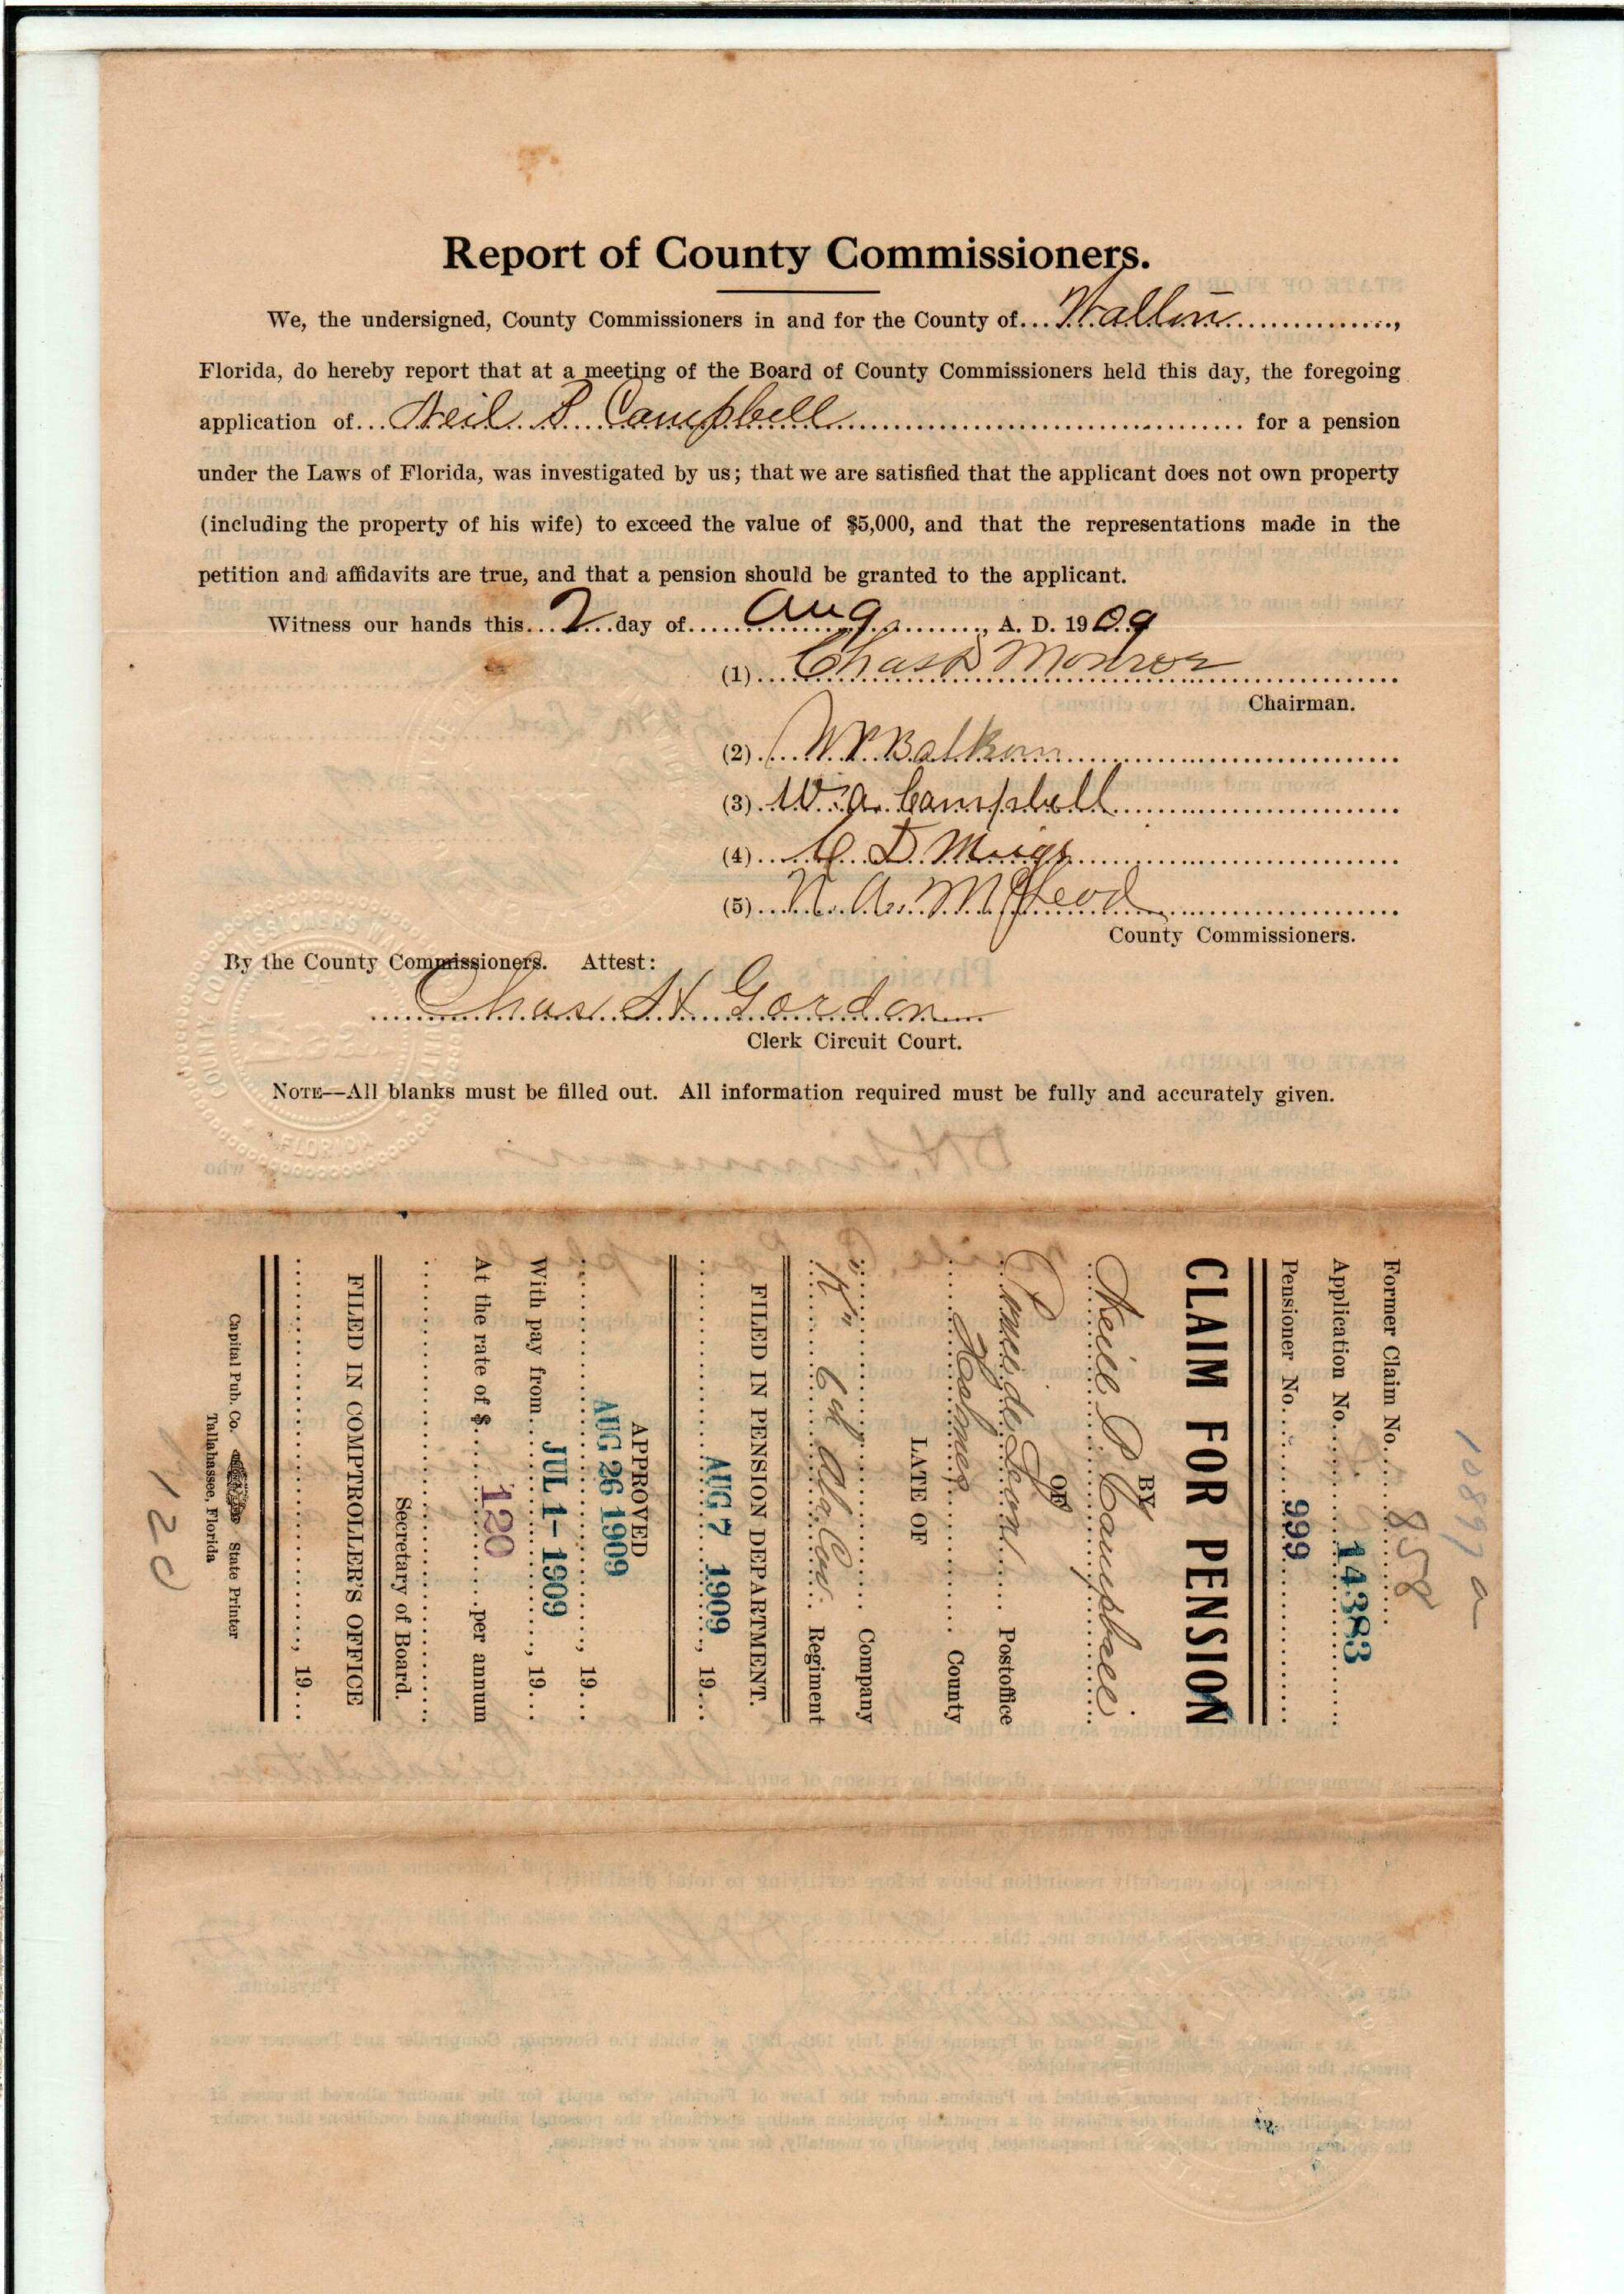 Report of County Commissioners.
We, the undersigned, County Commissioners in and for the County of... Walton ...,
Florida, do hereby report that at a meeting of the Board of County Commissioners held this day, the foregoing
application of... Neil P. Campbell ... for a pension
under the Laws of Florida, was investigated by us; that we are satisfied that the applicant does not own property
(including the property of his wife) to exceed the value of $5,000, and that the representations made in the
petition and affidavits are true, and that a pension should be granted to the applicant.
Witness our hands this... 2 ...day of... Aug ..., A. D. 1909
(1)... Chas D Monroe
Chairman.
(2)... W.P. Balkom
(3) W. A. Campbell
(4)... C. D. Meigs
(5)... N. A. McLeod
County Commissioners.
By the County Commissioners. Attest:
Chas H Gordon
Clerk Circuit Court.
NOTE—All blanks must be filled out. All information required must be fully and accurately given.
COUNTY COMMISSIONERS
FLORIDA
10897
Former Claim No... 858
Application No... 14383
Pensioner No... 999
CLAIM FOR PENSION
BY
Neill P Campbell
OF
Ponce de Leon ... Postoffice
Holmes ... County
LATE OF
... Company
"K" 6th Ala. Cav. Regiment
FILED IN PENSION DEPARTMENT.
AUG 7 1909 , 19...
APPROVED
AUG 26 1909 , 19...
With pay from... JUL 1- 1909 , 19...
At the rate of $... 120 ...per annum
Secretary of Board.
FILED IN COMPTROLLER'S OFFICE
..., 19...
Capital Pub. Co. State Printer
Tallahassee, Florida
120